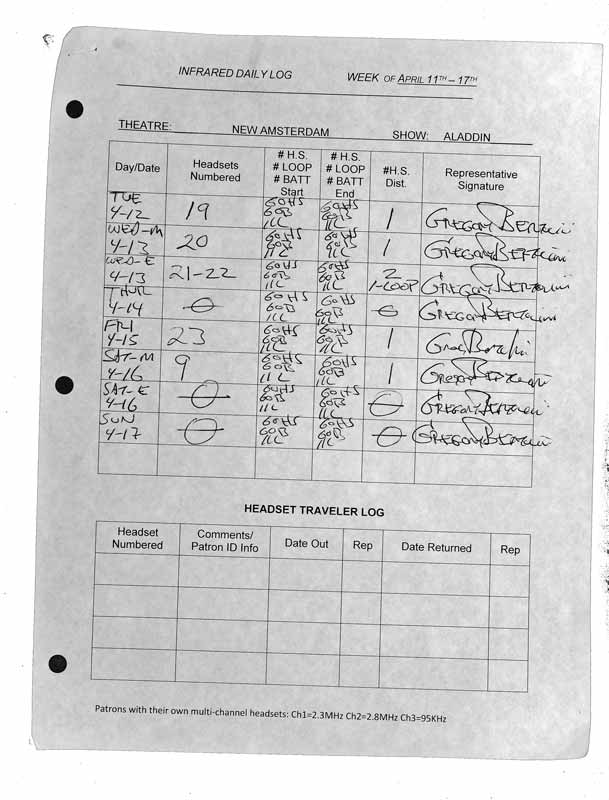 INFRARED DAILY LOG WEEK OF APRIL 11TH – 17TH
THEATRE: NEW AMSTERDAM SHOW: ALADDIN
Day/Date Headsets Numbered # H.S. # LOOP # BATT Start # H.S. # LOOP # BATT End #H.S. Dist. Representative Signature
TUE 4-12 19 60HS 60B 11L 60HS 60B 11L 1 GREGORY
WED-M 4-13 20 60HS 60B 11L 60HS 60B 11L 1 GREGORY
WED-E 4-13 21-22 60HS 60B 11L 60HS 60B 11L 2 1-LOOP GREGORY
THUR 4-14 0 60HS 60B 11L 60HS 60B 11L 0 GREGORY
FRI 4-15 23 60HS 60B 11L 60HS 60B 11L 1 GREG
SAT-M 4-16 9 60HS 60B 11L 60HS 60B 11L 1 GREGORY
SAT-E 4-16 0 60HS 60B 11L 60HS 60B 11L 0 GREGORY
SUN 4-17 0 60HS 60B 11L 60HS 60B 11L 0 GREGORY
HEADSET TRAVELER LOG
Headset Numbered Comments/ Patron ID Info Date Out Rep Date Returned Rep
Patrons with their own multi-channel headsets: Ch1=2.3MHz Ch2=2.8MHz Ch3=95KHz